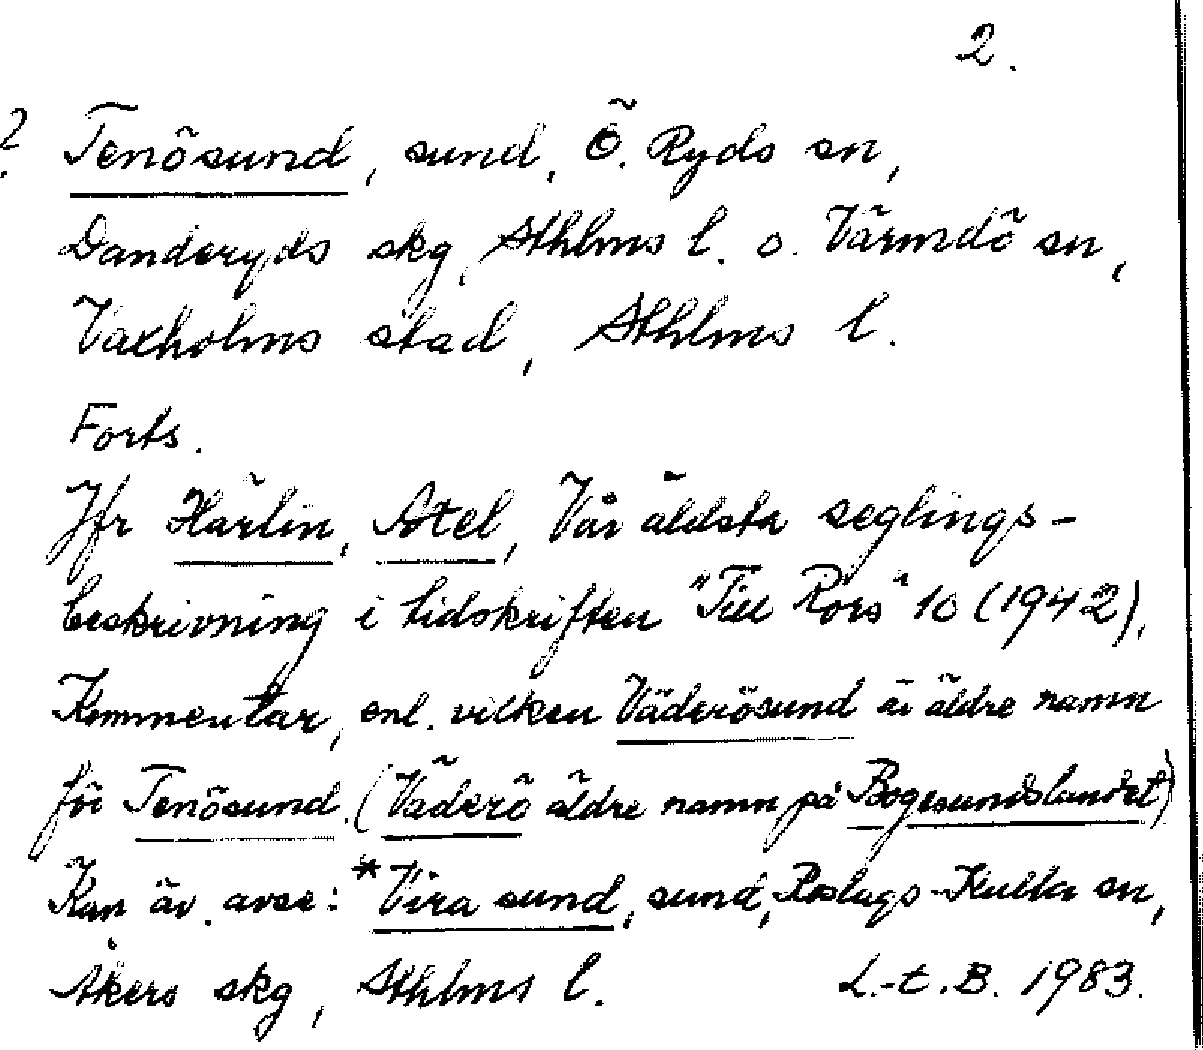 2.
? Tenösund, sund, Ö. Ryds sn,
Danderyds skg, Sthlms l. o. Värmdö sn,
Vaxholms stad, Sthlms l.
Forts.
Jfr Härlin, Axel, Vår äldsta seglings-
beskrivning i tidskriften "Till Rors" 10 (1942),
Kommentar, enl. vilken Väderösund är äldre namn
för Tenösund. (Väderö äldre namn på Bogesundslandet)
Kan äv. avse: *Vira sund, sund, Roslags-Kulla sn,
Åkers skg, Sthlms l. L.-E.B. 1983.